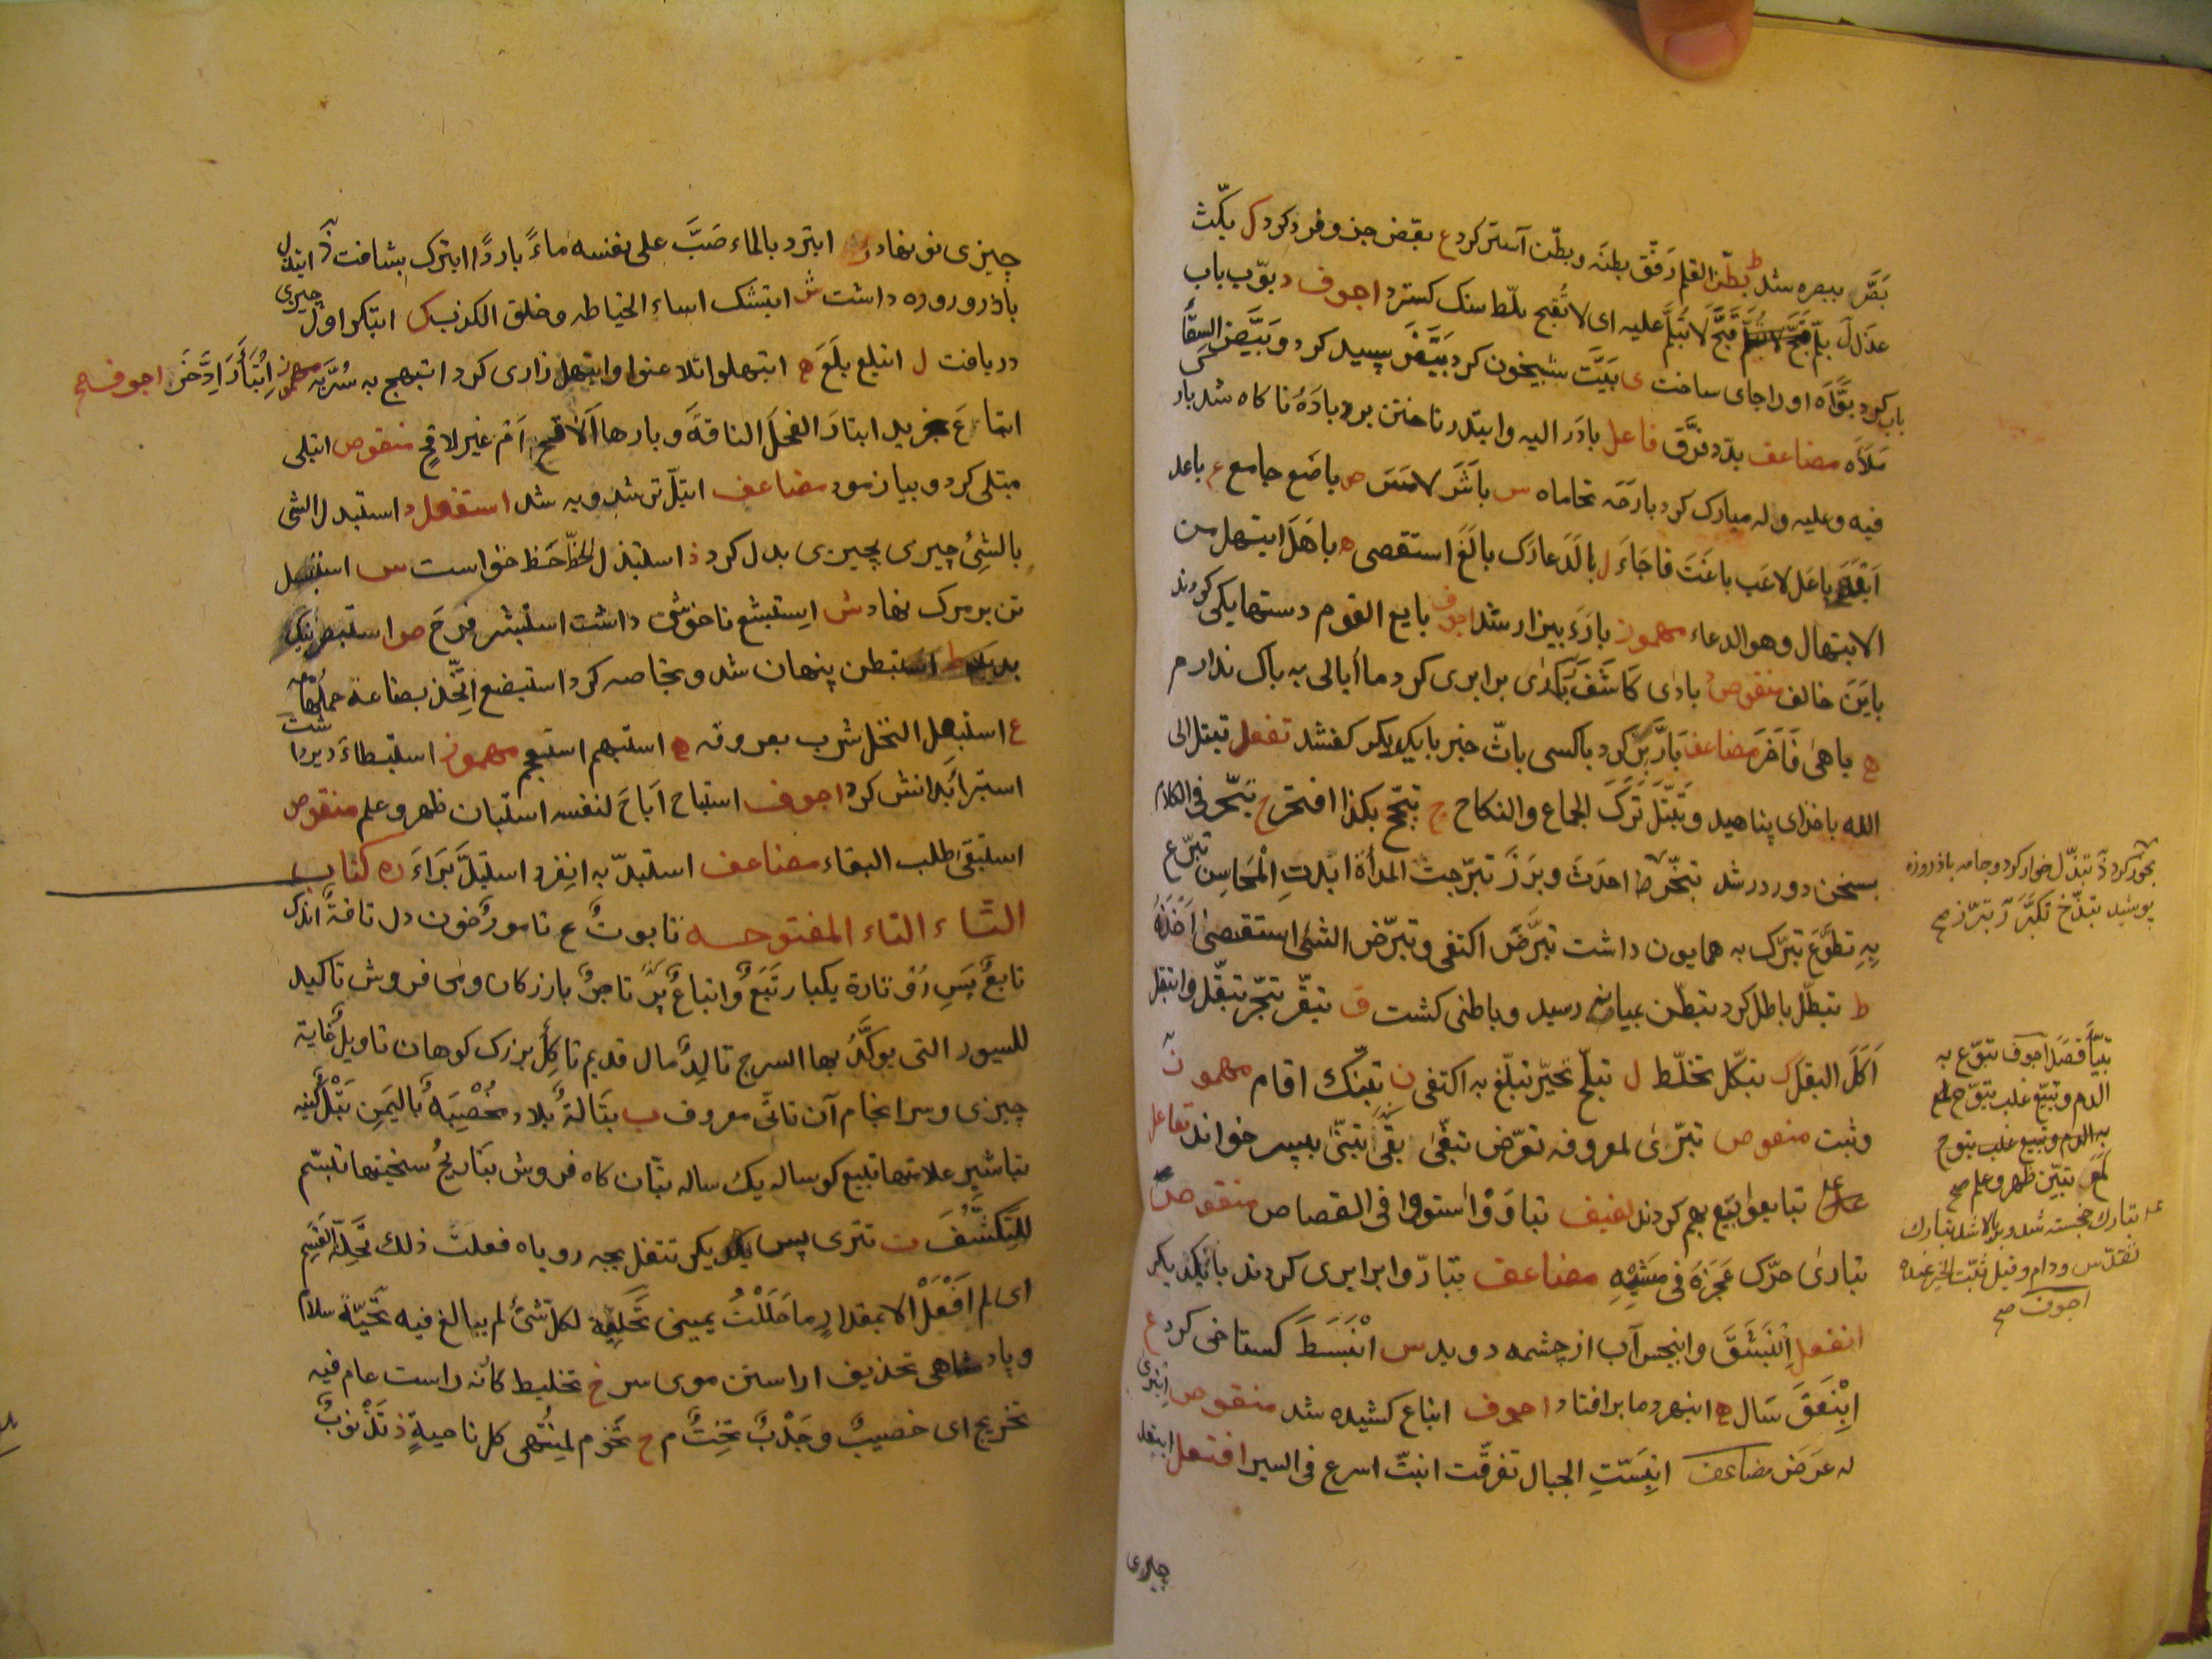 بَصَّر ببصره شد ط بطّن القلم رقّق بطنَه وبطّن آستر کرد ع بعّض جزو فرد کرد ک بکّث
عذل ل بلّم قبّح لا تُبَلّم علیه ای لا تُقبح بلّط سنک کسترد اجوف د بوّب باب
باب کرد بوّاَه اورا جای ساخت ی بَیَّت شبیخون کرد بَیَّضَ سپید کرد وبَیَّض السِقَاَ
مَلَاَه مضاعف بدّد فرَّق فاعل بادَر الیه وابتدر تاختن برد بادَهُ ناکاه شد بار
فیه وعلیه وله مبارک کرد بارحَه تحاماه س باشَرَ لامَسَ ص باضَع جامع ع باعد
باعل لاعَب باغَتَ فاجَاَءَ ل بالَدَ عارَک بالَغَ استقصی ه باهَلَ ابتهل من
الابتهال وهو الدعاء مهموز بارَءَ بیزار شد اجوف بایع القوم دستها یکی کردند
بایَنَ خالف منقوص بادٰی کَاشَفَ برابری کرد ما اُبالی به باک ندارم
ه باهٰی فَاَخَرَ مضاعف بَارَّ کرد باکسی باثّ خبر بایکدیکر کفتند تفعل تبتل الی
الله باخدای پناهید وتَبَتَّلَ تَرَکَ الجماع والنکاح ج تبجّح بکذا افتخر ح تبحّر فی الکلام
بسخن دور در شد تبخّر احدَثَ وبَرَزَ تبرّجت المرأة ابدَتِ المَحَاسِن تبرّع
بِهِ تطوَّعَ تبرّک به همایون داشت تبَرَّضَ اکتفی وتبرّض الشئ استقصیٰ اَخَذَهُ
ط تبطّل باطل کرد تبطّن بمیان رسید وباطنی کشت ق تبقّر تبحّر تبقّل وابتقل
اَکَلَ البقل ک تبکّل تخلّط ل تبلّج تحیّر تبلّغ به اکتفی ن تبنّک اقام مهموز
وثبت منقوص تبرّیٰ لمعروفه تعرّض تبقّیٰ بقّیٰ تبنّیٰ بپسر خواند تفاعل
تبایعوا بَیَّع بهم کردند لفیف تباوَوْا استووا فی القصاص منقوص
تبادیٰ حرّک عَجَزَهَ فی مَشیِهِ مضاعف تبادّوا برابری کردند بایکدیکر
انفعل اِنبَثَقَ وانبجس آب از چشمه دوید س انْبَسَطَ کستاخی کرد ع
اِنْبَعَقَ سَال ه انبهر دما برافتاد اجوف انباع کشیده شد منقوص انبری
له عَرَضَ مضاعف انبسّتِ الجبال تفرقّت انبتّ اسرع فی السیر افتعل ابتقل
بخور کرد ذ تبذّل خوار کرد وجامه باذروزه
پوشید تبذّخ تکبَّرَ ر تبرّز صح
تبیّأ قَصَدَ اجوف تبوّع به
الدم وتبیّع غلب تبوّج لمع
به الدم وتبیع غلب تبوج
لَمَعَ تبیّن ظهر وعلم صح
تبارک خجسته شد وبالا شد تبارک
تقدّس ودام وقیل ثبّت الخیر عنده
اجوف صح
چیزی
چیزی نو نهاد ابترد بالماء صَبَّ علی نفسه ماءً باردًا ابترک بشتافت ذ ابتذل
باذروروزه داشت ش ابتشک اساء الخیاطه وخلق الکذب ک ابتکر اول چیزی
دریافت ل ابتلع بلَعَ ه ابتهلوا تلاعنوا وابتهل زاری کرد ابتهج به سُرَّ به مهموز اِبْتَأَرَ اِدَّخَرَ اجوف صح
ابتاع خرید ابتارَ الفحلُ الناقةَ وبارها اَلَاقح اَم غیر لاقحٍ منقوص ابتلی
مبتلی کرد وبیازمود مضاعف ابتلّ تر شد وبه شد استفعل د استبدل الشی
بالشئِ چیزی بچیزی بدل کرد ذ استبذل الحَظّ حَظ خواست س استبسل
تن بر مرک نهاد ش اِستبشع ناخوش داشت استبشر فرِحَ ص استبصر نیک
بدید ط استبطن پنهان شد وبخاصه کرد استبضع اِتّخذ بضاعة حملها
ع استبعل النخل شرب بعروقه ه استبهم استعجم مهموز استبطاءَ دیر داشت
استبرأ پدانش کرد اجوف استباح اَباحَ لنفسه استبان ظهر وعلم منقوص
استبقیٰ طلب البقاء مضاعف استبدّ به انفرد استبلَّ بَرَاءَ ره کتاب
التاء التاء المفتوحه تابوتٌ ع تامورٌ خون دل تافةٌ اندک
تابعٌ پَسِ رَوْ تارة یکبار تَبَعٌ واتباعٌ تاجرٌ بازرکان ومی فروش تاکید
للسیور التی یوکَّدُ بها السرج تالِدٌ مال قدیم تاکِلٌ بزرک کوهان تاویلٌ غایة
چیزی وسرانجام آن تاتّی معروف ب تبَالةٌ بلاد مخْصِبَةٌ بالیَمنِ تَبْلٌ کینه
تباشیر علامتها تبیع کوساله یک ساله تبّان کاه فروش تبَاریحُ سختیها تبسّم
للتکَشُّف ت تتری پس یکدیکر تتفل بچه روباه فعلَتُ ذلک تَحِلَّةَ القَسَم
ای لم اَفْعَلْ الا بمقدارِ ما حَلَلْتُ یمینی تَحِلَّة لکلّ شئٍ لم یبالغ فیه تَحِیّةٌ سلام
وپادشاهی تحذیف اراستن موی سر خ تخلیط کانه راست عام فیه
تخریج ای خصیبٌ وجَدْبٌ تَخِتٌ م ج تخوم لِمنْتُهی کل ناحیةٍ ذ تَذْنوبٌ